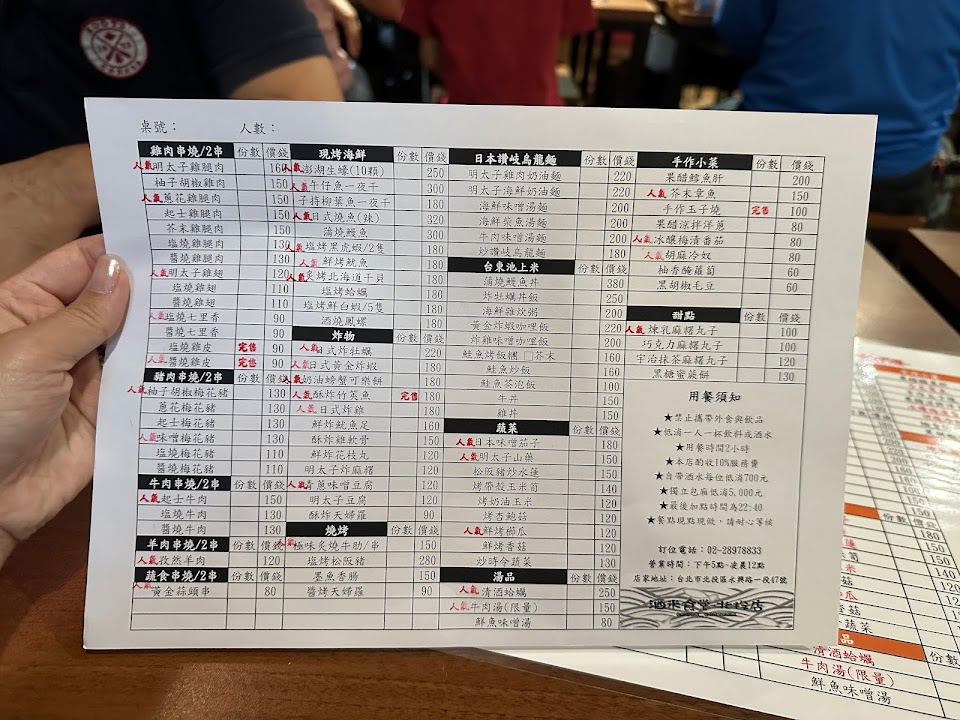 桌號：
人數：
雞肉串燒/2串 份數 價錢
人氣 明太子雞腿肉 160
柚子胡椒雞肉 150
人氣 蔥花雞腿肉 150
起士雞腿肉 150
芥末雞腿肉 150
塩燒雞腿肉 130
醬燒雞腿肉 130
人氣 明太子雞翅 120
塩燒雞翅 110
醬燒雞翅 110
人氣 塩燒七里香 90
醬燒七里香 90
塩燒雞皮 完售 90
人氣 醬燒雞皮 完售 90
豬肉串燒/2串 份數 價錢
人氣 柚子胡椒梅花豬 130
蔥花梅花豬 130
起士梅花豬 130
人氣 味噌梅花豬 130
塩燒梅花豬 110
醬燒梅花豬 110
牛肉串燒/2串 份數 價錢
人氣 起士牛肉 150
塩燒牛肉 130
醬燒牛肉 130
羊肉串燒/2串 份數 價錢
人氣 孜然羊肉 120
蔬食串燒/2串 份數 價錢
人氣 黃金蒜頭串 80
現烤海鮮 份數 價錢
人氣 澎湖生蠔(10顆) 250
人氣 午仔魚一夜干 300
子持柳葉魚一夜干 180
人氣 日式燒魚(辣) 320
蒲燒鰻魚 300
人氣 塩烤黑虎蝦/2隻 180
人氣 鮮烤魷魚 180
人氣 炙烤北海道干貝 180
塩烤蛤蠣 180
塩烤鮮白蝦/5隻 180
酒燒鳳螺 180
炸物 份數 價錢
人氣 日式炸牡蠣 220
人氣 日式黃金炸蝦 180
人氣 奶油螃蟹可樂餅 180
人氣 酥炸竹莢魚 完售 180
人氣 日式炸雞 180
鮮炸魷魚足 160
酥炸雞軟骨 150
鮮炸花枝丸 120
明太子炸麻糬 120
人氣 青蔥味噌豆腐 120
明太子豆腐 120
酥炸天婦羅 90
燒烤 份數 價錢
人氣 極味炙燒牛肋/串 150
塩烤松阪豬 280
墨魚香腸 150
醬烤天婦羅 90
日本讚岐烏龍麵 份數 價錢
明太子雞肉奶油麵 220
明太子海鮮奶油麵 220
海鮮味噌湯麵 200
海鮮柴魚湯麵 200
牛肉味噌湯麵 200
炒讚岐烏龍麵 180
台東池上米 份數 價錢
蒲燒鰻魚丼 380
炸牡蠣丼飯 250
海鮮雜炊粥 200
黃金炸蝦咖哩飯 220
炸雞味噌咖哩飯 200
鮭魚烤飯糰 □芥末 160
鮭魚炒飯 160
鮭魚茶泡飯 100
牛丼 150
雞丼 150
蔬菜 份數 價錢
人氣 日本味噌茄子 180
人氣 明太子山藥 150
松阪豬炒水蓮 150
烤帶殼玉米筍 140
烤奶油玉米 120
烤杏鮑菇 120
人氣 鮮烤櫛瓜 120
鮮烤香菇 120
炒時令蔬菜 130
湯品 份數 價錢
人氣 清酒蛤蠣 250
人氣 牛肉湯(限量) 150
鮮魚味噌湯 80
手作小菜 份數 價錢
果醋鱈魚肝 200
人氣 芥末章魚 150
手作玉子燒 完售 100
果醋涼拌洋蔥 80
人氣 冰釀梅漬番茄 80
人氣 胡麻冷奴 80
柚香醃蘿蔔 60
黑胡椒毛豆 60
甜點 份數 價錢
人氣 煉乳麻糬丸子 100
巧克力麻糬丸子 100
宇治抹茶麻糬丸子 120
黑糖蜜蕨餅 130
用餐須知
★禁止攜帶外食與飲品
★低消一人一杯飲料或酒水
★用餐時間2小時
★本店酌收10%服務費
★自帶酒水每位低消700元
★獨立包廂低消5,000元
★最後加點時間為22:40
★餐點現點現做，請耐心等候
訂位電話：02-28978833
營業時間：下午5點~凌晨12點
店家地址：台北市北投區永興路一段47號
酒米食堂-北投店
份數 價錢
清酒蛤蠣 份數
牛肉湯(限量)
鮮魚味噌湯